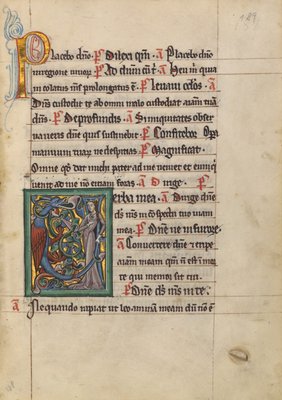 129
Placebo dno. P Dilexi qm. A Placebo dno
in regione uiuor. P Ad dnm cu t. A Heu m qui a
in colatus ms prolongatus e. P Leuaui oclos. A
Dns custodit te ab omni malo custodiat aiam tua
dns. P De profundis. A Si iniquitates obser
uaueris dne quis sustinebit. P Confitebor. Ope
manuum tuar ne despicias. P Magnificat.
Omne qd dat michi pater ad me ueniet et eum qui
uenit ad me no eiciam foras. A Dirige. P
Verba mea. A Dirige dne
ds ms in cspectu tuo uiam
mea. P Dne ne in furore.
A Conuertere dne et eripe
aiam meam qm n est in mor
te qui memor sit tui.
P Dne ds ms in te.
A Nequando rapiat ut leo animam meam du no e